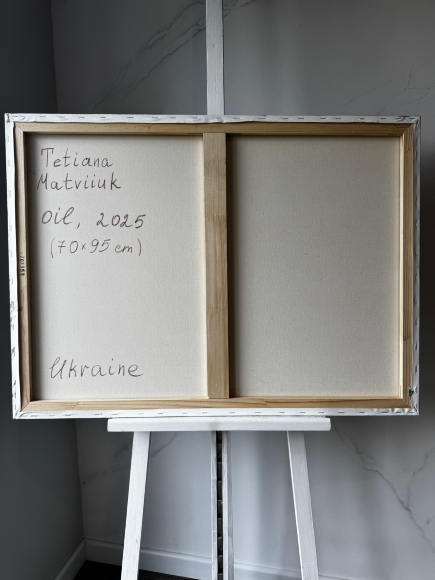 Tetiana
Matviiuk
oil, 2025
(70×95 cm)
Ukraine